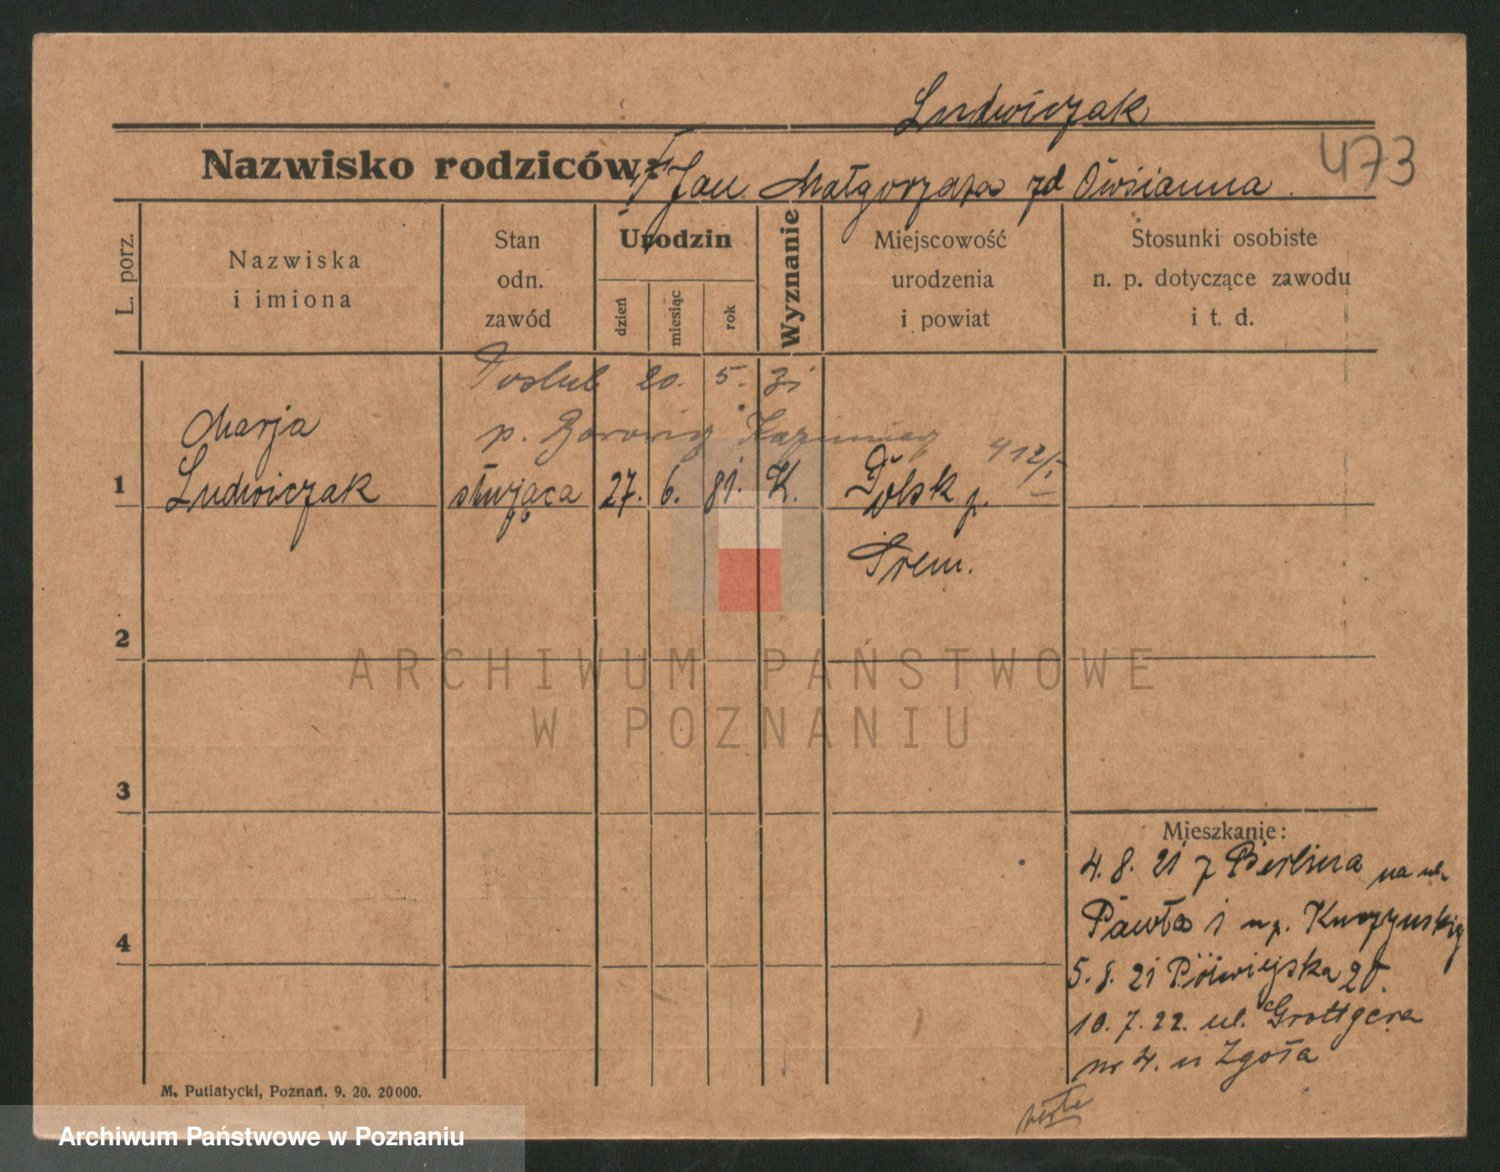 Ludwiczak
Nazwisko rodziców: Jan Małgorzata zd Owsianna.
473
L. porz.
Nazwiska
i imiona
Stan
odn.
zawód
Urodzin
dzień
miesiąc
rok
Wyznanie
Miejscowość
urodzenia
i powiat
Stosunki osobiste
n. p. dotyczące zawodu
i t. d.
20. 5. 31
p. Kazimierz
Marja
412/I
1 Ludwiczak służąca 27. 6. 81. K. Dolsk p.
Śrem.
2
3
4
Mieszkanie:
4. 8. 21 z Berlina na ul.
Pawła 1
5. 8. 21 Półwiejska 20.
10. 7. 22. ul. Grottgera
nr 4. u Zgoła
M. Putiatycki, Poznań. 9. 20. 20000.
ARCHIWUM PAŃSTWOWE
W POZNANIU
Archiwum Państwowe w Poznaniu